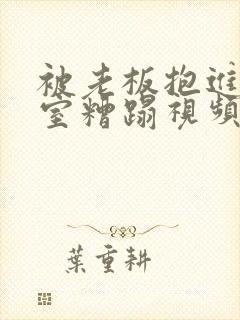 被老板抱進
室糟蹋視頻
葉重耕